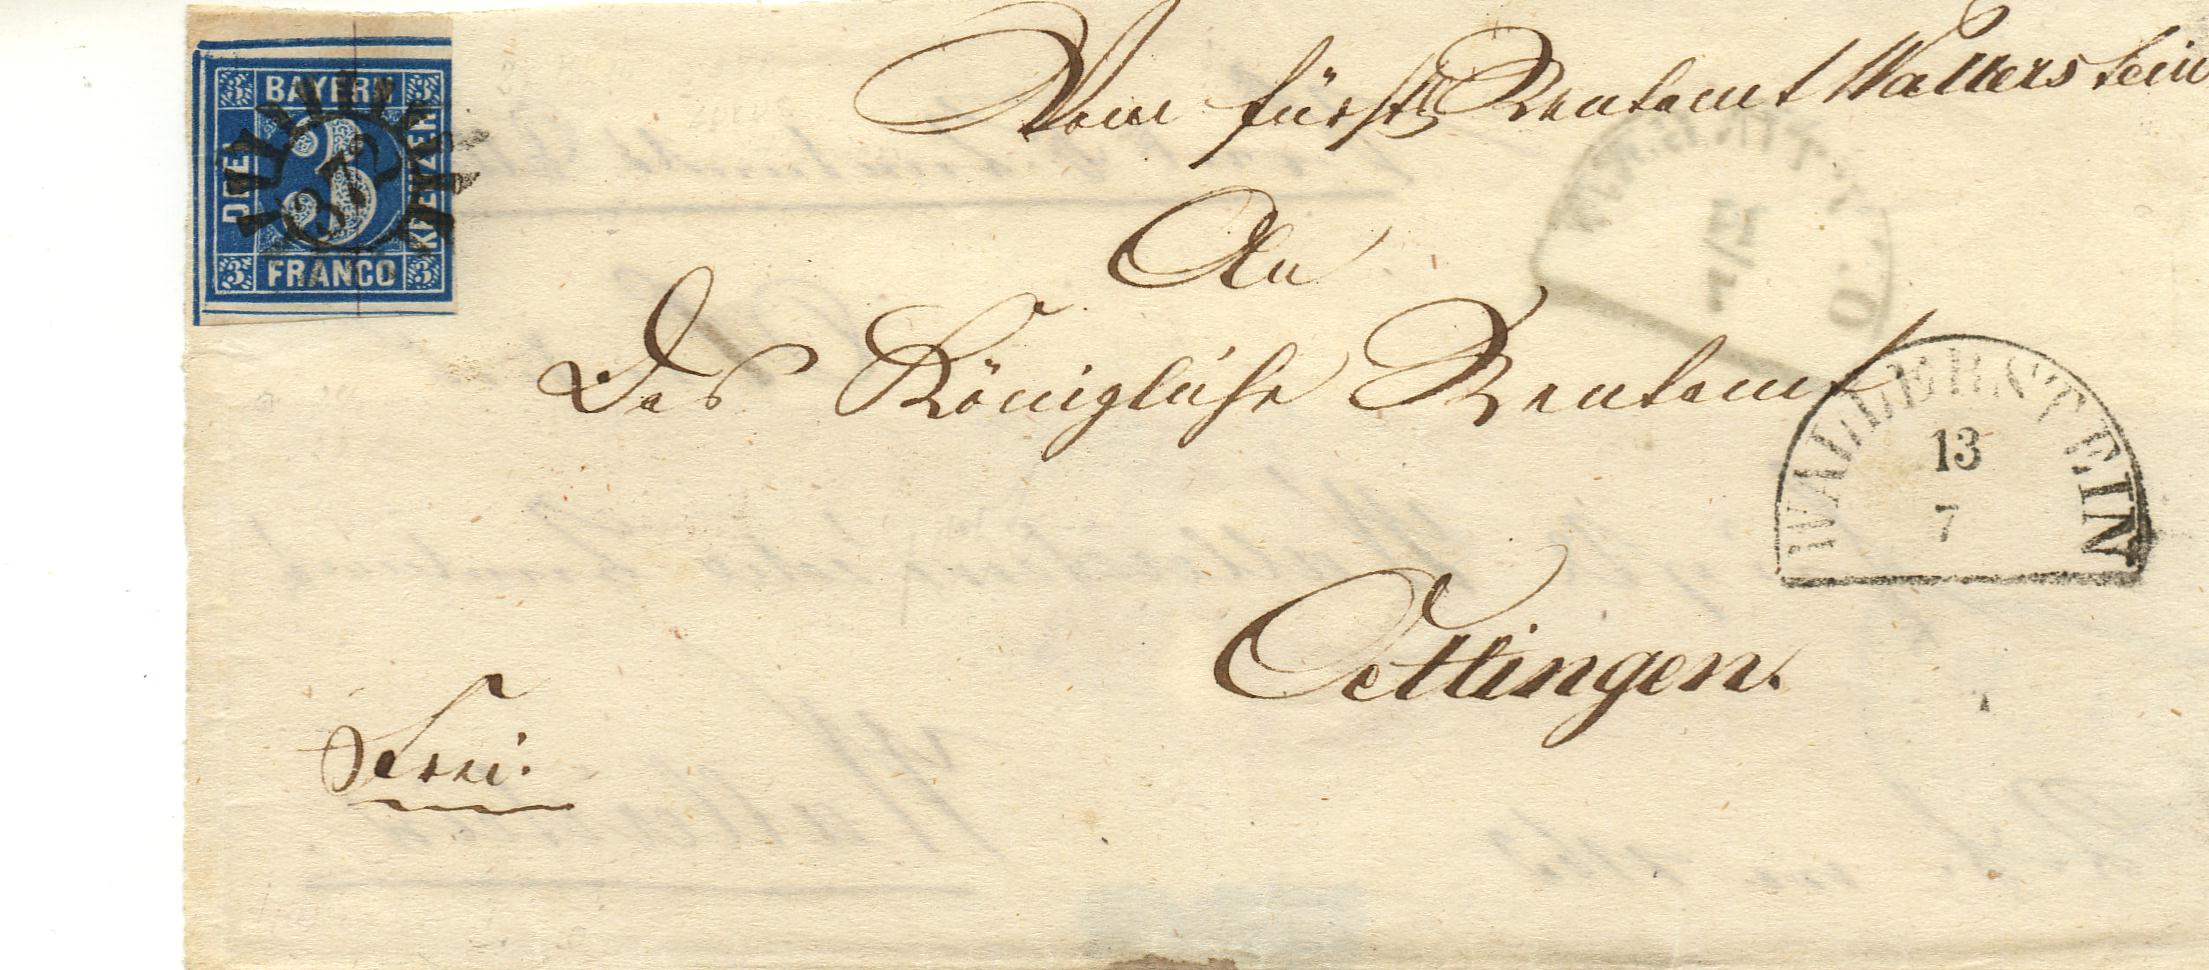 BAYERN
DREI
3
KREUZER
FRANCO
3 3 3 3
372
Vom fürstl. Rentamt Wallerstein
An
Das Königliche Rentamt
WALLERSTEIN
13
7
Oettingen.
Frei.